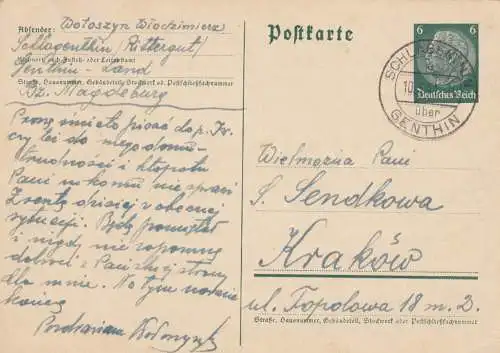 Absender: Wołoszyn Włodzimierz
Schlagenthin (Rittergut)
Wohnort, auch Zustell- oder Leitpostamt
Genthin - Land
Straße, Hausnummer, Gebäudeteil, Stockwerk od. Postschließfachnummer
Bz. Magdeburg
Proszę śmiało pisać do p. Kr.
czy to do mego domu
trudności i kłopotu
Pani nikomu nie sprawi
Zresztą dzisiaj w obecnej
sytuacji. Będę pamiętał
i nigdy nie zapomnę
dobroci z Pani strony
dla mnie. Na tym narazie
kończę
Pozdrawiam Wołoszyn
Postkarte
6 6
Deutsches Reich
SCHLAGENTHIN
10.
über
GENTHIN
Wielmożna Pani
S. Sendkowa
Kraków
ul. Topolowa 18 m. 2.
Straße, Hausnummer, Gebäudeteil, Stockwerk oder Postschließfachnummer